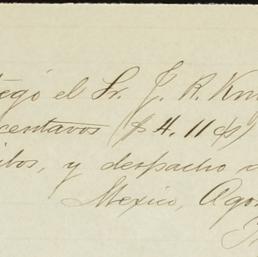 egó el Sr. J. R. Kn
centavos $4.11 c
ibos, y despacho
Mexico, Agos